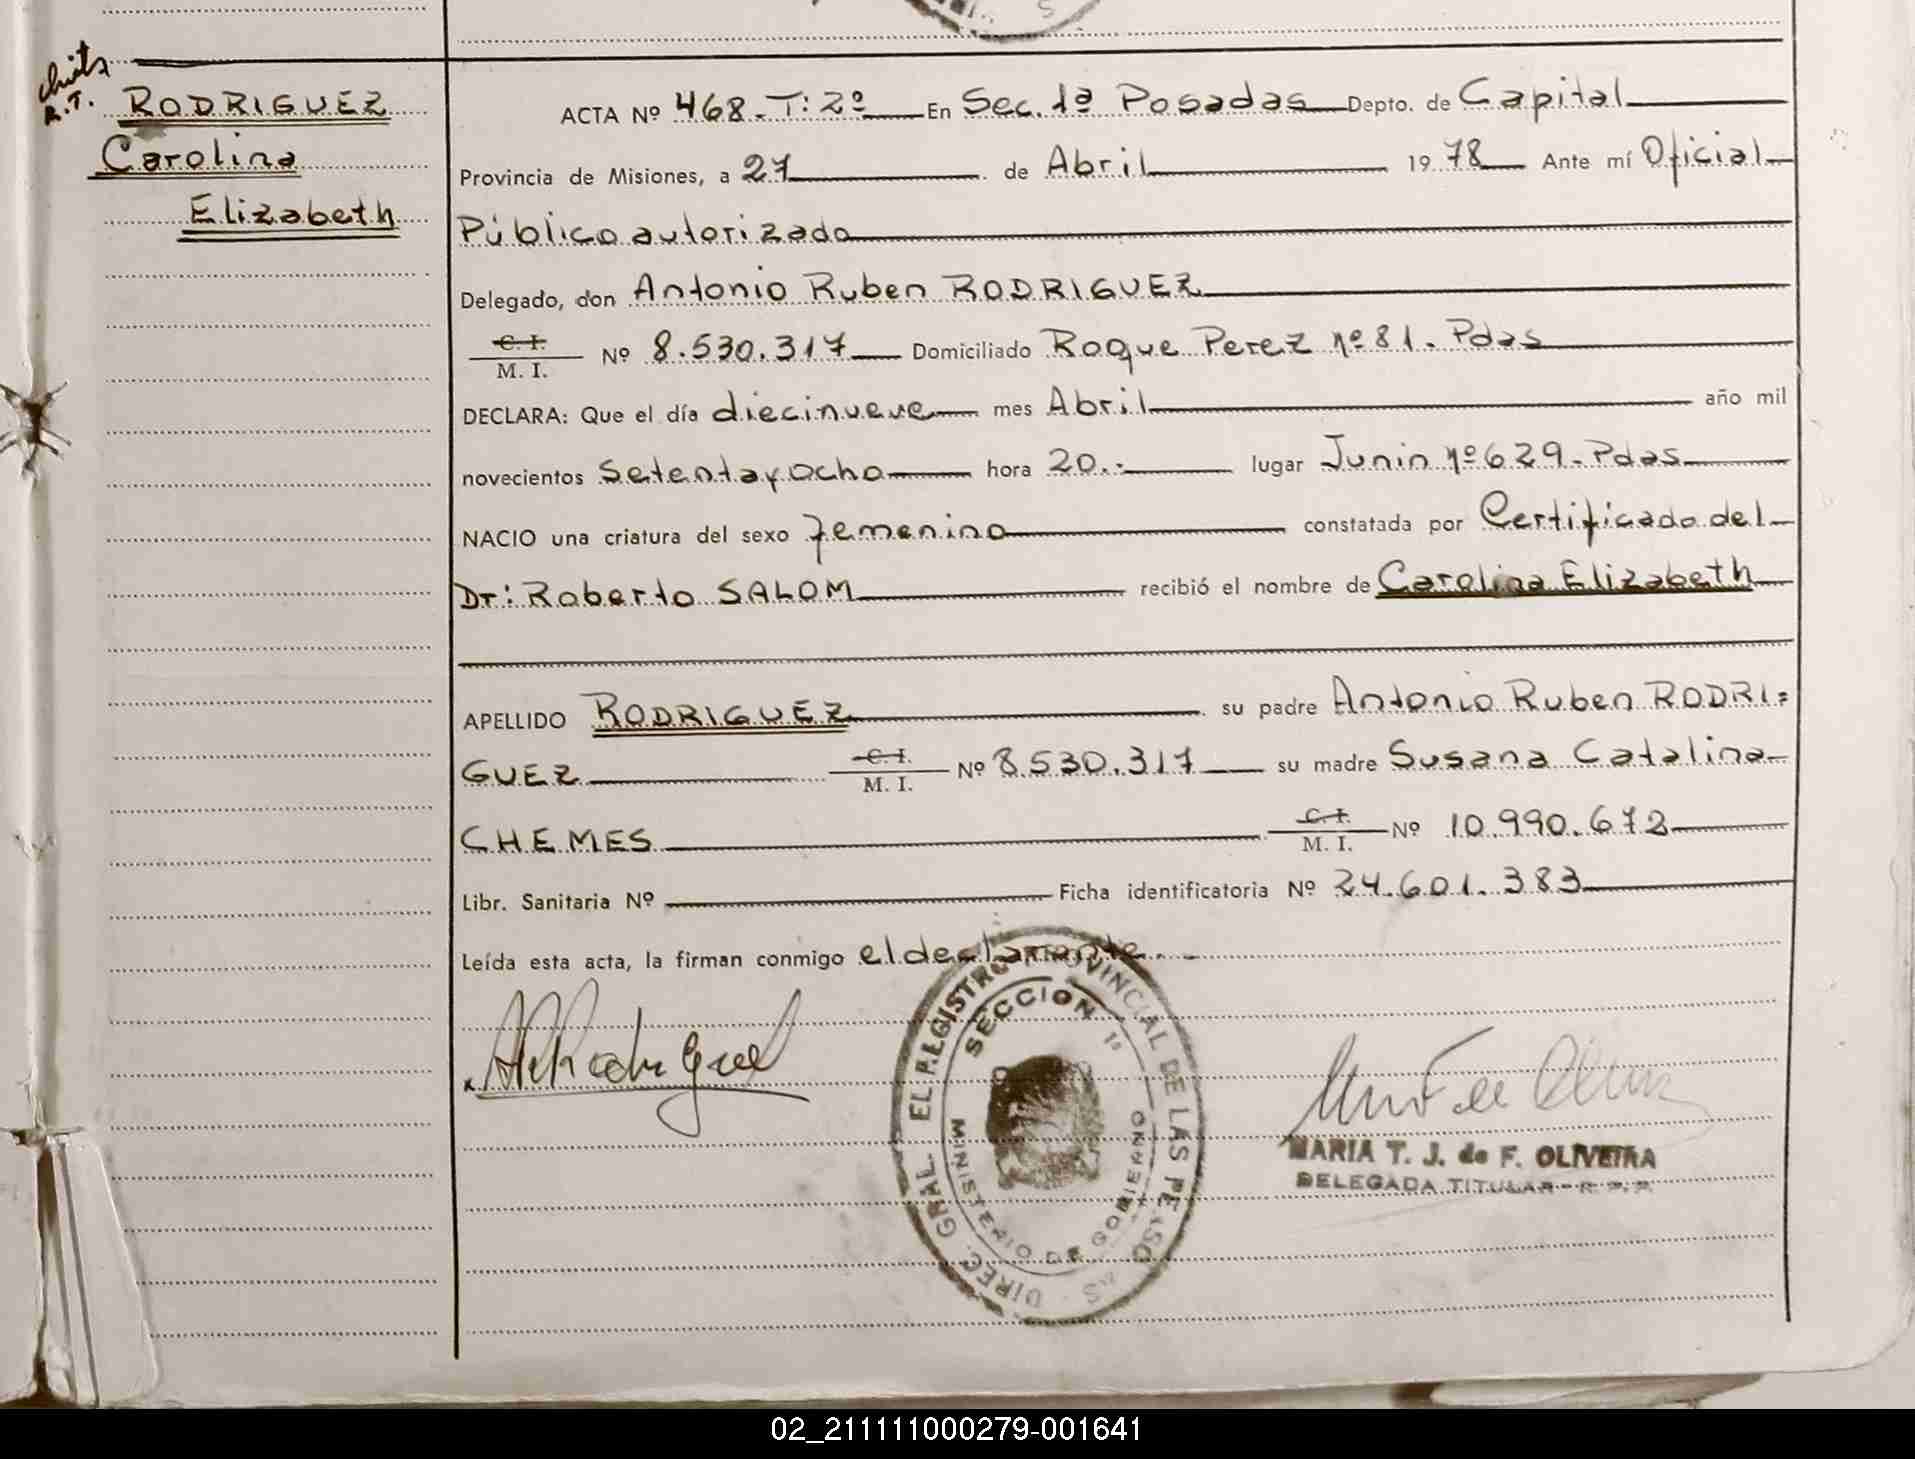 R.T.
RODRIGUEZ
Carolina
Elizabeth
ACTA Nº 468-T:2º En Sec. 1ª Posadas Depto. de Capital
Provincia de Misiones, a 27 de Abril 1978 Ante mí Oficial
Público autorizado
Delegado, don Antonio Ruben RODRIGUEZ
C. I. / M. I. Nº 8.530.317 Domiciliado Roque Perez nº 81. Pdas
DECLARA: Que el día diecinueve mes Abril año mil
novecientos Setenta y ocho hora 20.- lugar Junin nº 629-Pdas
NACIO una criatura del sexo femenino constatada por Certificado del
Dr: Roberto SALOM recibió el nombre de Carolina Elizabeth
APELLIDO RODRIGUEZ su padre Antonio Ruben RODRI=
GUEZ C. I. / M. I. Nº 8.530.317 su madre Susana Catalina
CHEMES C. I. / M. I. Nº 10.990.672
Libr. Sanitaria Nº Ficha identificatoria Nº 24.601.383
Leída esta acta, la firman conmigo el declarante.-
DIREC. GRAL. EL REGISTRO PROVINCIAL DE LAS PERSONAS
SECCION 1ª
MINISTERIO DE GOBIERNO
MARIA T. J. de F. OLIVEIRA
DELEGADA TITULAR - R. P. P.
02_211111000279-001641